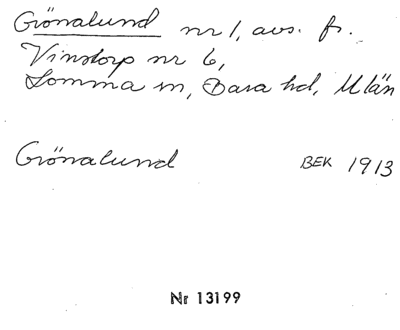 Grönalund nr 1, avs. fr.
Vinstorp nr 6,
Lomma sn, Bara hd, M län
Grönalund BEK 1913
Nr 13199